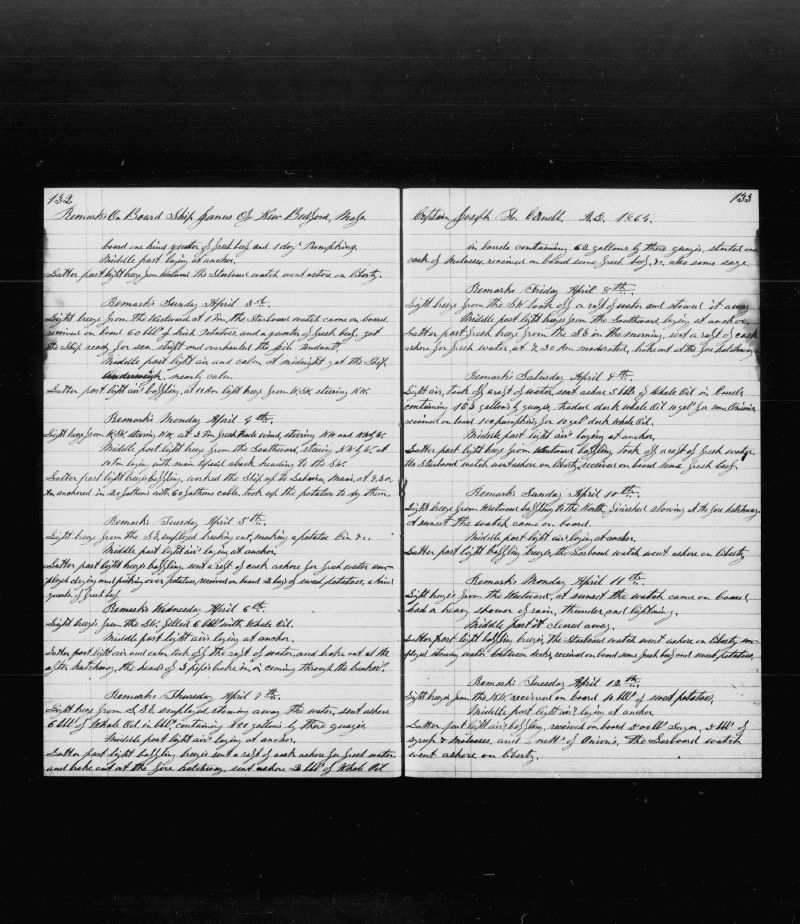 132
Remarks On Board Ship Janus Of New Bedford, Mass
board one hind quarter of fresh beef and 1 doz Pumpkins.
Middle part laying at anchor.
Latter part light breeze from Westward the Starboard watch went ashore on liberty.
Remarks Sunday April 3rd.
Light breeze from the Westward at 1 Pm, the Starboard watch came on board
received on board 60 bbls of Irish Potatoes, and a quarter of fresh beef, got
the Ship ready for sea
Middle part light air and calm at midnight got the Ship
Underweigh. nearly calm
Latter part light airs baffling, at 11 Am light breeze from W.SW. steering N.W.
Remarks Monday April 4th.
Light breeze from W.SW. steering N.W. at 3 Pm fresh Trade wind, steering N.W and NW by W.
Middle part light breeze from the Southward, steering N.W by W. at
10 Pm laying with main topsail aback heading to the S.W.
Latter part light breeze baffling, worked the Ship up to Lahaina, Maui, at 9.30.
Am anchored in 20 fathoms with 60 fathoms cable, took up the potatoes to dry them.
Remarks Tuesday April 5th.
Light breeze from the S.E, employed breaking out, making a potatoe bin &c.
Middle part light airs laying at anchor.
Latter part light breeze baffling, sent a raft of cask ashore for fresh water em-
ployed drying and picking over potatoes, received on board 2 bags of sweet potatoes, a hind
quarter of fresh beef
Remarks Wednesday April 6th.
Light breeze from the SW. filled 6 bbls with Whale Oil.
Middle part light airs laying at anchor.
Latter part light air and calm took off the raft of water, and broke out at the
after hatchway, the heads of 3 pipes broke in, oil coming through the breaks.
Remarks Thursday April 7th.
Light breeze from S, S.E. employed stowing away the water, sent ashore
6 bbls of Whale Oil in bbls, containing gallons by there guage.
Middle part light airs laying at anchor.
Latter part light baffling breeze sent a raft of cask ashore for fresh water
and broke out at the fore hatchway, sent ashore 2 bbls of Whale Oil
133
Captain Joseph H. Cornell. A.D. 1864.
in barrels containing 62 gallons by there guage, started one
cask of Molasses, received on board some fresh beef, &c. also some
Remarks Friday April 8th.
Light breeze from the SW took off a raft of water and stowed it away
Middle part light breeze from the Southward, laying at anchor,
Latter part fresh breeze from the S.E in the morning, sent a raft of cask
ashore for fresh water, at 7,30 Am moderated, broke out at the fore hatchway
Remarks Saturday April 9th.
Light air, took off a raft of water, sent ashore 5 bbls of Whale Oil in barrels
containing 153 gallons by guage, traded dark whale Oil 10 gals for some Onions,
received on board 100 pumpkins for 10 gal dark Whale Oil.
Middle part light airs laying at anchor,
Latter part light breeze from Westward baffling took off a raft of fresh water
the Starboard watch went ashore on liberty, received on board some fresh beef.
Remarks Sunday April 10th.
Light breeze from Westward baffling to the North, finished stowing at the fore hatchway,
at sunset the watch came on board.
Middle part light airs laying at anchor.
Latter part light baffling breeze, the Larboard watch went ashore on liberty
Remarks Monday April 11th.
Light breeze from the Westward, at sunset the watch came on board
had a heavy shower of rain, thunder, and lightning,
Middle part it cleared away.
Latter part light baffling breeze, the Starboard watch went ashore on liberty em-
ployed stowing water between decks, received on board some fresh beef and sweet potatoes.
Remarks Tuesday April 12th.
Light breeze from the NW. received on board 10 bbls of sweet potatoes,
Middle part light airs laying at anchor
Latter part light airs baffling, received on board Sugar, 5 bbls of
syrup & Molasses, and of Onions, the Larboard watch
went ashore on liberty.